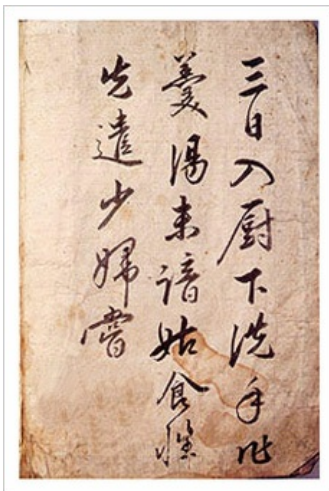 三日入廚下洗手作
羹湯未諳姑食性
先遣少婦嘗